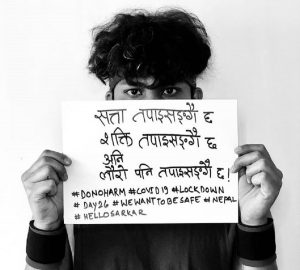 सत्ता तपाइसङ्गै छ
शक्ति तपाइसङ्गै छ
अनि
लौरो पनि तपाइसङ्गै छ!
#DONOHARM #COVID19 #LOCKDOWN
#DAY26 #WEWANTTOBESAFE #NEPAL
#HELLOSARKAR